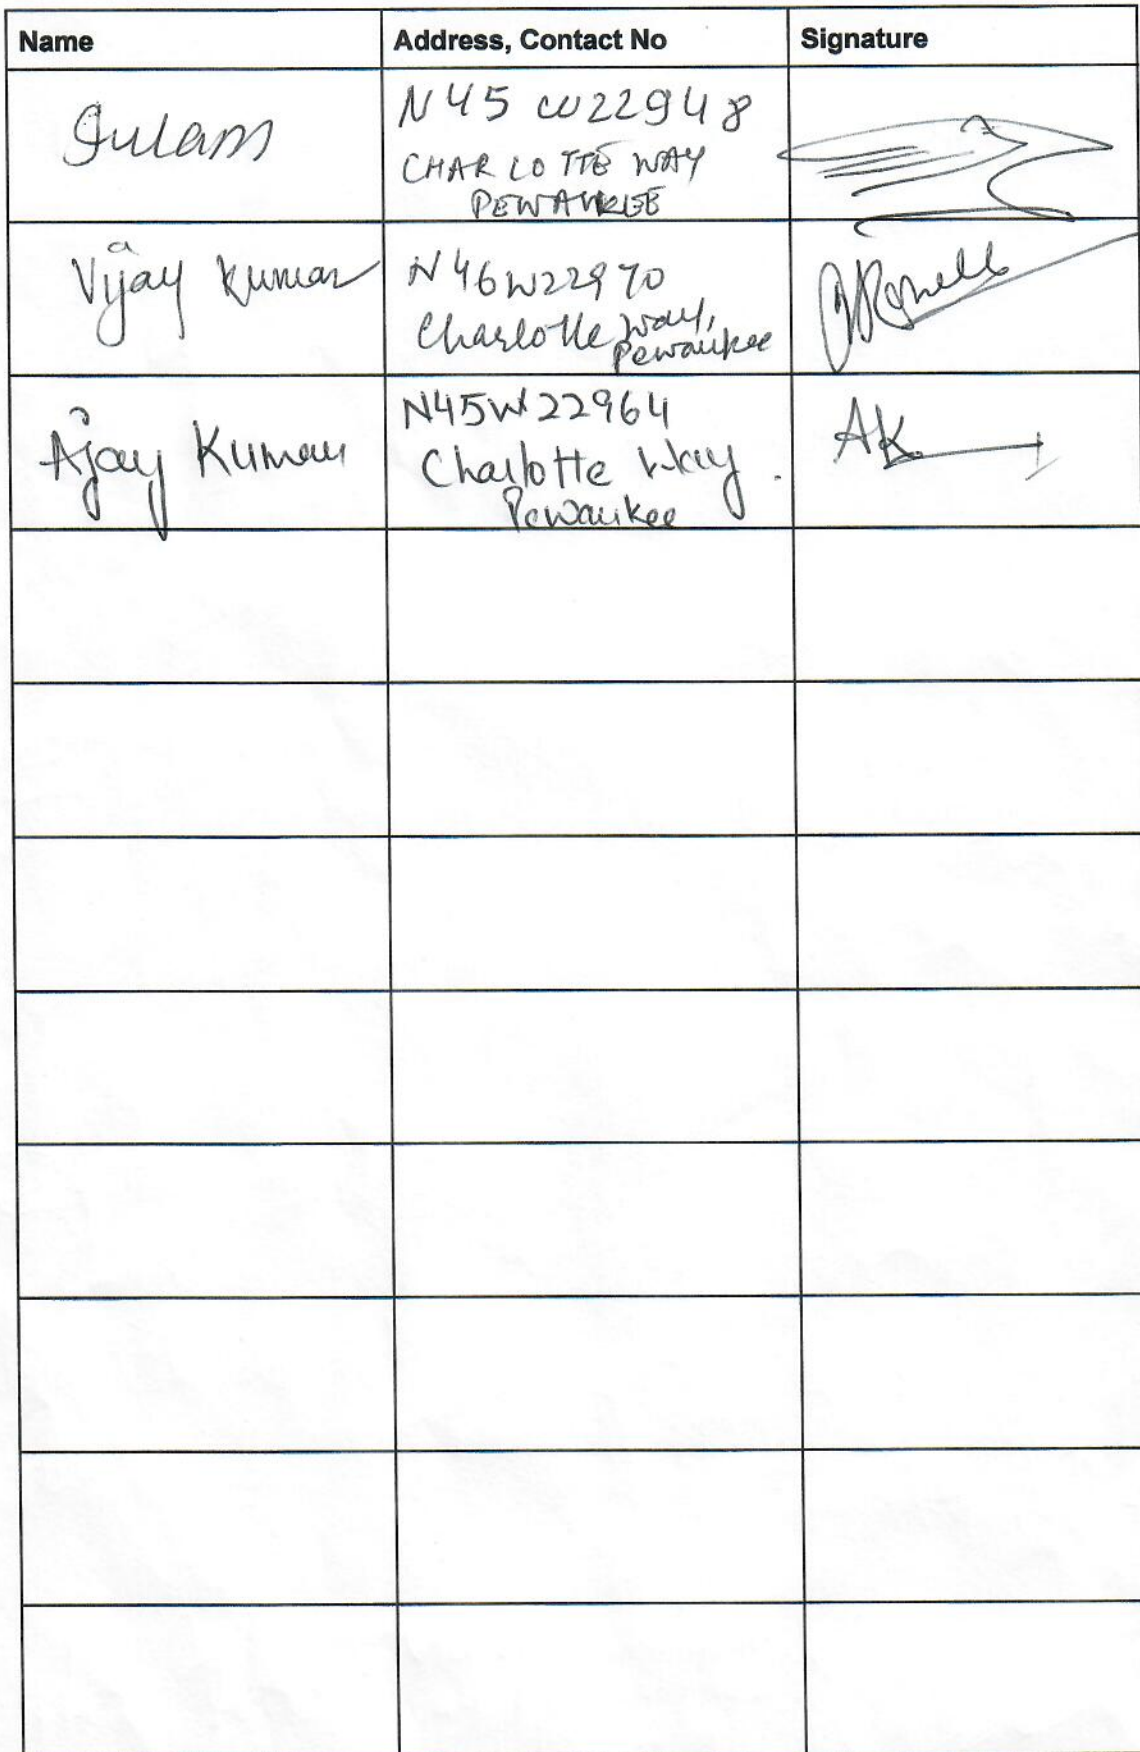 Name Address, Contact No Signature
Gulam
N45 W22948
CHARLOTTE WAY
PEWAUKEE
Vijay Kumar
N46W22970
Charlotte Way,
Pewaukee
Ajay Kumar
N45W22964
Charlotte Way.
Pewaukee
AK